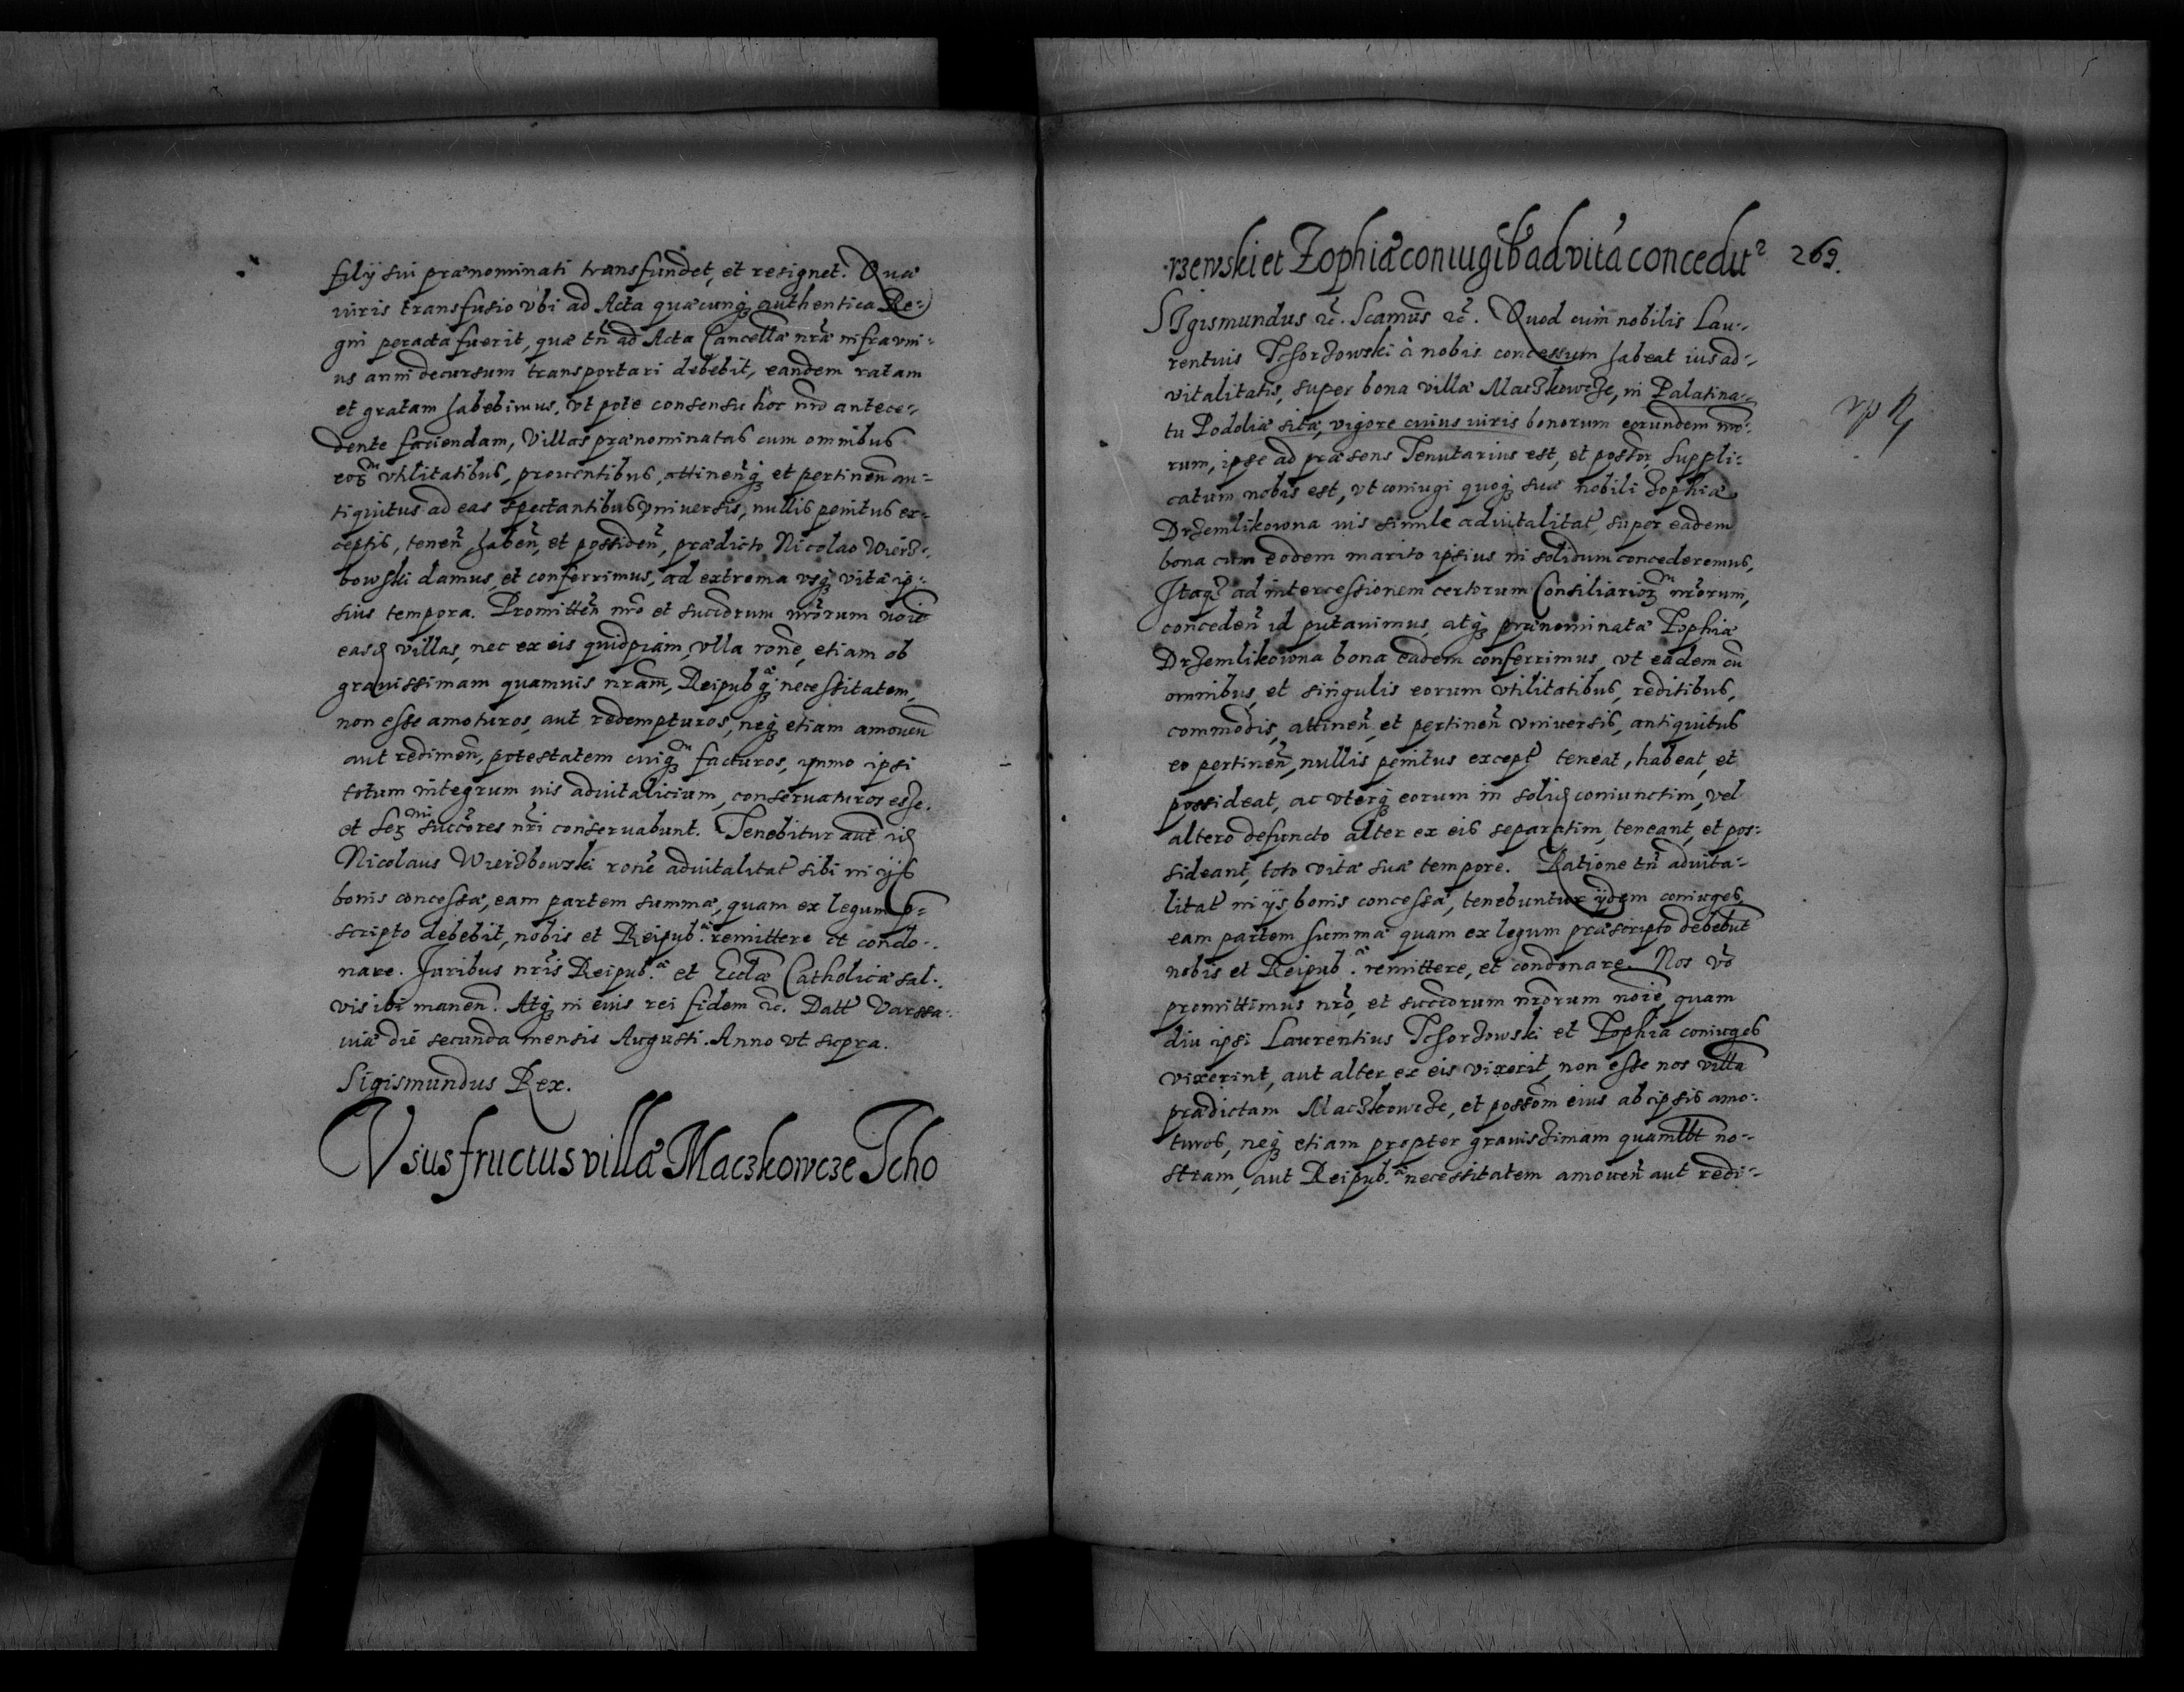 filij sui prænominati transfundet, et resignet. Quæ
iuris transfusio vbi ad Acta quæcunq; authentica Re-
gni peracta fuerit, quæ tn̄ ad Acta Cancellæ nr̃æ infra vni-
us anni decursum transportari debebit, eandem ratam
et gratam habebimus, vt pote consensu hoc nr̃o antece-
dente faciendam, Villas prænominatas cum omnibus
eoꝝ vtilitatibus, prouentibus, attinen̄q; et pertinen̄ an-
tiquitus ad eas spectantibus vniuersis, nullis penitus ex-
ceptis, tenen̄, haben̄, et possiden̄, prædicto Nicolao Wierz-
bowski damus et conferrimus, ad extrema vsq; vitæ ip-
sius tempora. Promitten̄ nr̃o et succorum nr̃orum noīe
easd villas, nec ex eis quidpiam, vlla rōne, etiam ob
grauissimam quamuis nr̃am, Reipub q; necessitatem,
non esse amoturos, aut redempturos, neq; etiam amouen̄
aut redimen̄, potestatem cuiq facturos, ymmo ipsi
totum integrum ius aduitalicium, conseruaturos esse.
et Ser̄mi succōres nr̃i conseruabunt. Tenebitur aut̄ id
Nicolaus Wierzbowski rōne aduitalitat̄ sibi in ijs
bonis concessæ, eam partem summæ, quam ex legum p-
scripto debebit, nobis et Reipub. remittere et condo-
nare. Juribus nr̃is Reipub.æ et Ecclæ Catholicæ sal-
vis ibi manen̄. Atq; in cuis rei fidem &c. Datt Varssa-
uiæ die secunda mensis Augusti. Anno vt supra.
Sigismundus Rex.
Vsusfructus villæ Maczkowcze Tcho
rzewski et Zophiæ coniugib ad vitā concedit 269.
SIgismundus &c. Scamus &c. Quod cum nobilis Lau-
rentius Tchorzowski à nobis concessum habeat ius ad-
vitalitatis, super bona villæ Maczkowcze, in Palatina-
tu Podoliæ sita, vigore cuius iuris bonorum eorundem
rum, ipse ad præsens Tenutarius est, et possor, suppli-
catum nobis est, vt coniugi quoq; suæ nobili Zophiæ
Drzemlikowna ius simile aduitalitat̄, super eadem
bona cum eodem marito ipsius in solidum concederemus,
Itaq; ad intercessionem certorum Consiliarioꝝ nr̃orum,
conceden̄ id putauimus, atq; prænominatæ Zophiæ
Drzemlikowna bona eadem conferrimus, vt eadem cū
omnibus, et singulis eorum vtilitatibus, reditibus,
commodis, attinen̄, et pertinen̄ vniuersis, antiquitus
eo pertinen̄, nullis penitus except̄ teneat, habeat, et
possideat, ac vterq; eorum in solid coniunctim, vel
altero defuncto alter ex eis separatim, teneant, et pos-
sideant, toto vitæ suæ tempore. Ratione tn̄ aduita-
litat̄ in ijs bonis concessæ, tenebuntur ijdem coniuges,
eam partem summæ quam ex legum præscripto debebūt
nobis et Reipub.æ remittere, et condonare. Nos vō
promittimus nr̃o, et succorum nr̃orum noīe, quam
diu ipsi Laurentius Tchorzowski et Zophia coniuges
vixerint, aut alter ex eis vixerit, non esse nos villa
prædictam Maczkowcze, et possom eius ab ipsis amo-
turos, neq; etiam propter grauissimam quamlbt no-
stram, aut Reipub.æ necessitatem amouen̄ aut redi-